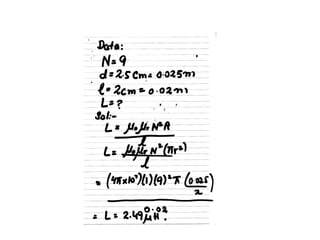 Data:
N = 9
d = 2.5 cm = 0.025 m
l = 2 cm = 0.02 m
L = ?
Sol:-
L = μ₀μᵣN²A / l
L = μ₀μᵣN²(πr²) / l
= (4π×10⁷)(1)(9)²π (0.025 / 2) / 0.02
= L = 2.49 μH.